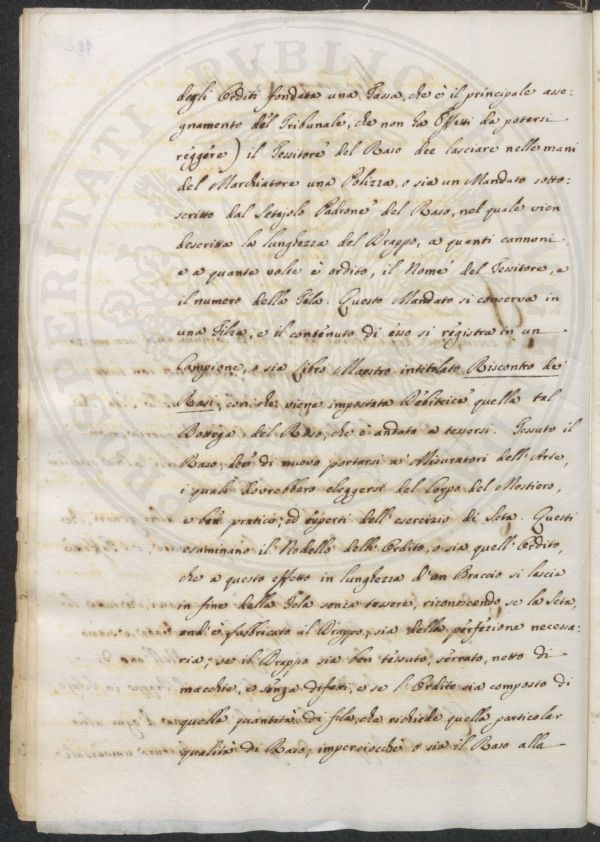 degli Orditi fondata una Tassa, che è il principale asse-
gnamento del Tribunale, che non ha Effetti da potersi
reggere) il Tessitore del Raso dee lasciare nelle mani
del Marchiatore una Polizza, o sia un Mandato sotto-
scritto dal Setajolo Padrone del Raso, nel quale vien
descritta la lunghezza del Drappo, a quanti cannoni
e a quante volte è ordito, il Nome del Tessitore, e
il numero della Tela. Questo Mandato si conserva in
una Filza, e il contenuto di esso si registra in un
Campione, o sia Libro Maestro intitolato Riscontro de'
Rasi, con che viene impostata Debitrice quella tal
Bottega del Raso, che è andata a tessersi. Tessuto il
Raso, deè di nuovo portarsi a' Misuratori dell'Arte,
i quali dovrebbero eleggersi del Corpo del Mestiero,
e ben pratici, ed esperti dell'esercizio di Seta. Questi
esaminano il Rodello dell'Ordito, o sia quell'Ordito,
che a questo effetto in lunghezza d'un Braccio si lascia
in fine della Tela senza tessere, riconoscendo se la Seta,
ond'è fabbricato il Drappo, sia della perfezione necessa-
ria; se il Drappo sia ben tessuto, serrato, netto di
macchie, e senza difetti, e se l'Ordito sia composto di
quella quantità di fila, che richiede quella particolar
qualità di Raso; imperciocchè o sia il Raso alla
PROSPERITATI PUBLICAE